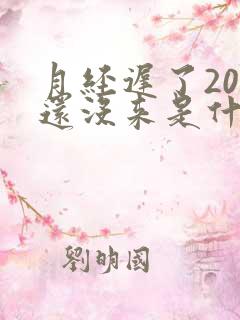 月经遲了20
還沒来是什
劉明國